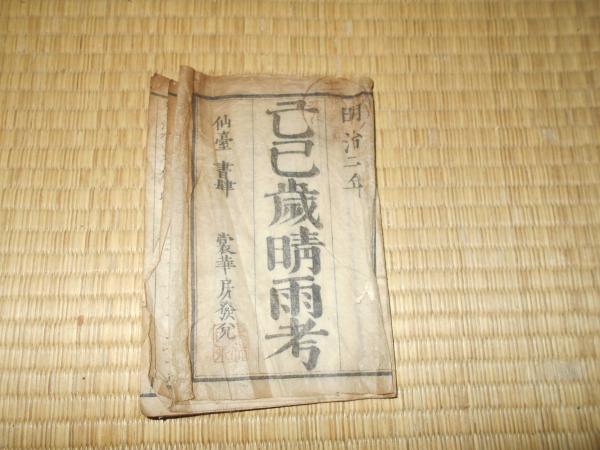 明治二年
己巳歳晴雨考
仙臺 書肆 裳華房発兌